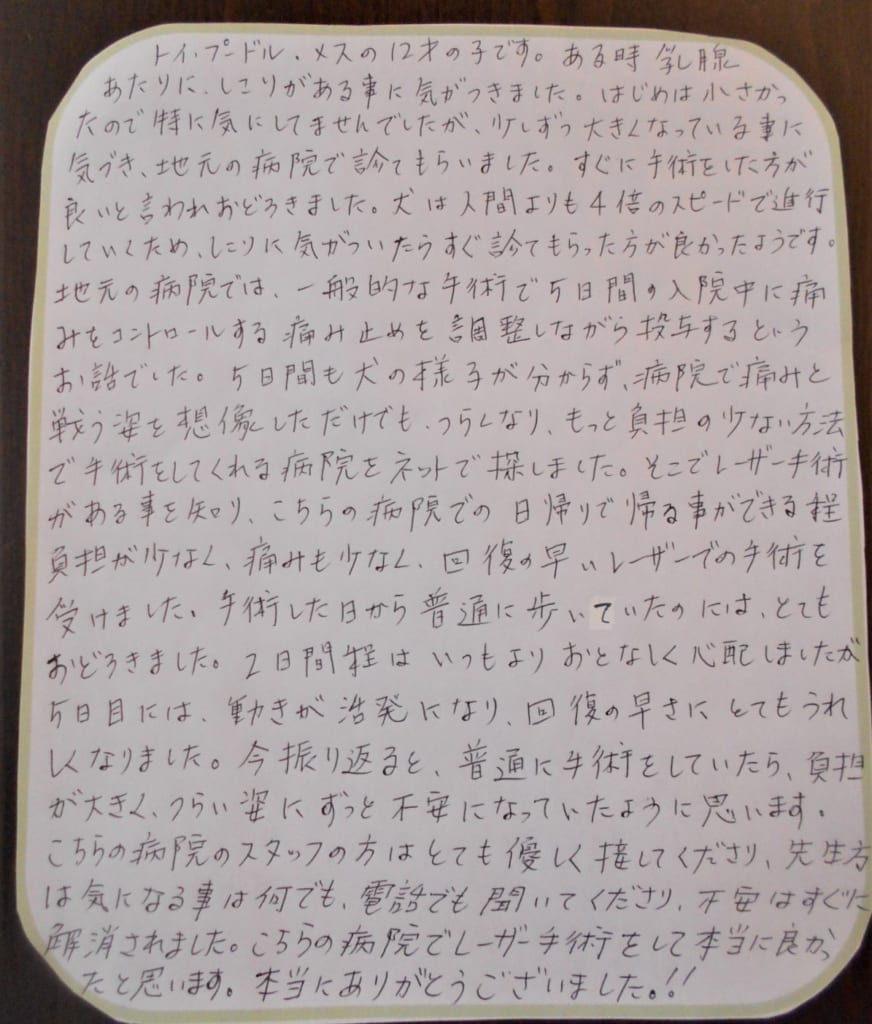 トイ・プードル・メスの12才の子です。ある時 乳腺
あたりに、しこりがある事に気がつきました。はじめは小さかっ
たので特に気にしてませんでしたが、少しずつ大きくなっている事に
気づき、地元の病院で診てもらいました。すぐに手術をした方が
良いと言われおどろきました。犬は人間よりも4倍のスピードで進行
していくため、しこりに気がついたらすぐ診てもらった方が良かったようです。
地元の病院では、一般的な手術で5日間の入院中に痛
みをコントロールする痛み止めを調整しながら投与するという
お話でした。5日間も犬の様子が分からず、病院で痛みと
戦う姿を想像しただけでも、つらくなり、もっと負担の少ない方法
で手術をしてくれる病院をネットで探しました。そこでレーザー手術
がある事を知り、こちらの病院での日帰りで帰る事ができる程
負担が少なく、痛みも少なく、回復の早いレーザーでの手術を
受けました。手術した日から普通に歩いていたのには、とても
おどろきました。2日間程はいつもよりおとなしく心配しましたが
5日目には、動きが活発になり、回復の早さにとてもうれ
しくなりました。今振り返ると、普通に手術をしていたら、負担
が大きく、つらい姿にずっと不安になっていたように思います。
こちらの病院のスタッフの方はとても優しく接してくださり、先生方
は気になる事は何でも、電話でも聞いてくださり、不安はすぐに
解消されました。こちらの病院でレーザー手術をして本当に良かっ
たと思います。本当にありがとうございました。!!